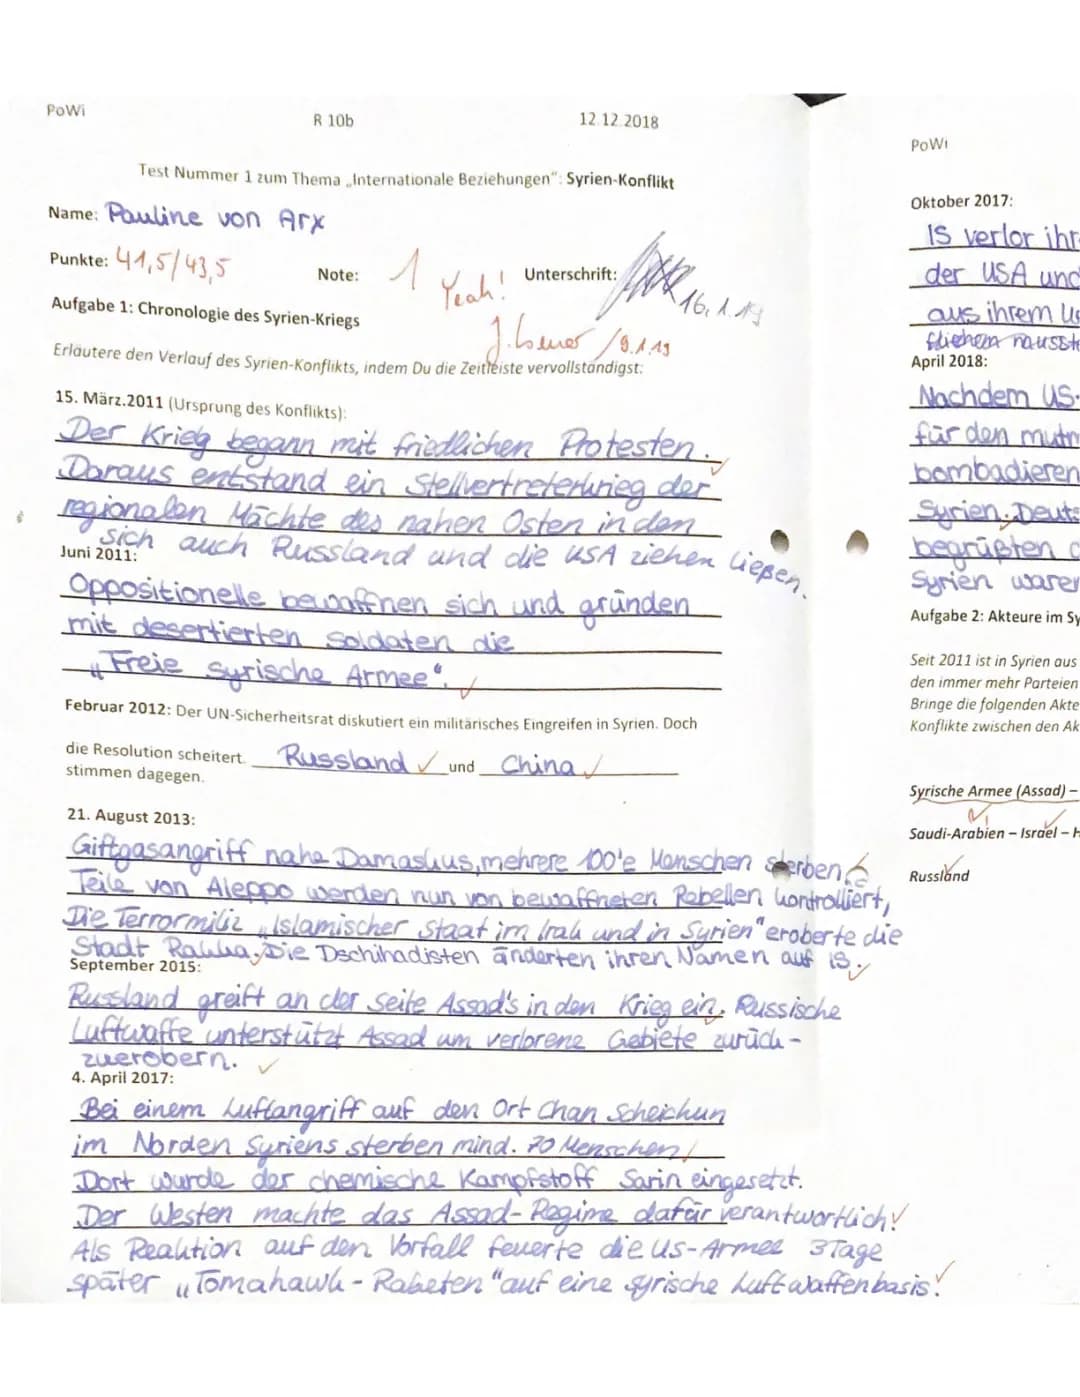 PoWi
R 10b
12.12.2018
Test Nummer 1 zum Thema „Internationale Beziehungen": Syrien-Konflikt
Name: Pauline von Arx
Punkte: 41,5/43,5
Note: 1 Yeah!
Unterschrift: 16.1.19
Aufgabe 1: Chronologie des Syrien-Kriegs
Erläutere den Verlauf des Syrien-Konflikts, indem Du die Zeitleiste vervollständigst:
15. März.2011 (Ursprung des Konflikts):
Der Krieg begann mit friedlichen Protesten.
Daraus entstand ein Stellvertreterkrieg der
regionalen Mächte des nahen Osten in den
sich auch Russland und die USA ziehen ließen.
Juni 2011:
Oppositionelle bewaffnen sich und gründen
mit desertierten Soldaten die
„Freie syrische Armee".
Februar 2012: Der UN-Sicherheitsrat diskutiert ein militärisches Eingreifen in Syrien. Doch
die Resolution scheitert. Russland und China
stimmen dagegen.
21. August 2013:
Giftgasangriff nahe Damaskus, mehrere 100'e Menschen sterben
Teile von Aleppo werden nun von bewaffneten Rebellen kontrolliert,
Die Terrormiliz „Islamischer Staat im Irak und in Syrien" eroberte die
Stadt Rakka. Die Dschihadisten änderten ihren Namen auf IS.
September 2015:
Russland greift an der Seite Assad's in den Krieg ein. Russische
Luftwaffe unterstützt Assad um verlorene Gebiete zurück-
zuerobern.
4. April 2017:
Bei einem Luftangriff auf den Ort Chan Scheichun
im Norden Syriens sterben mind. 70 Menschen
Dort wurde der chemische Kampfstoff Sarin eingesetzt.
Der Westen machte das Assad-Regime dafür verantwortlich.
Als Reaktion auf den Vorfall feuerte die US-Armee 3 Tage
später „Tomahawk-Raketen" auf eine syrische Luftwaffenbasis.
PoWi
Oktober 2017:
IS verlor ihr
der USA und
aus ihrem
fliehen
April 2018:
Nachdem US-
für den mutm
bombadieren
Syrien. Deuts
begrüßten
Syrien waren
Aufgabe 2: Akteure im Sy
Seit 2011 ist in Syrien aus
den immer mehr Parteien
Bringe die folgenden Akte
Konflikte zwischen den Ak
Syrische Armee (Assad) –
Saudi-Arabien – Israel – H
Russland